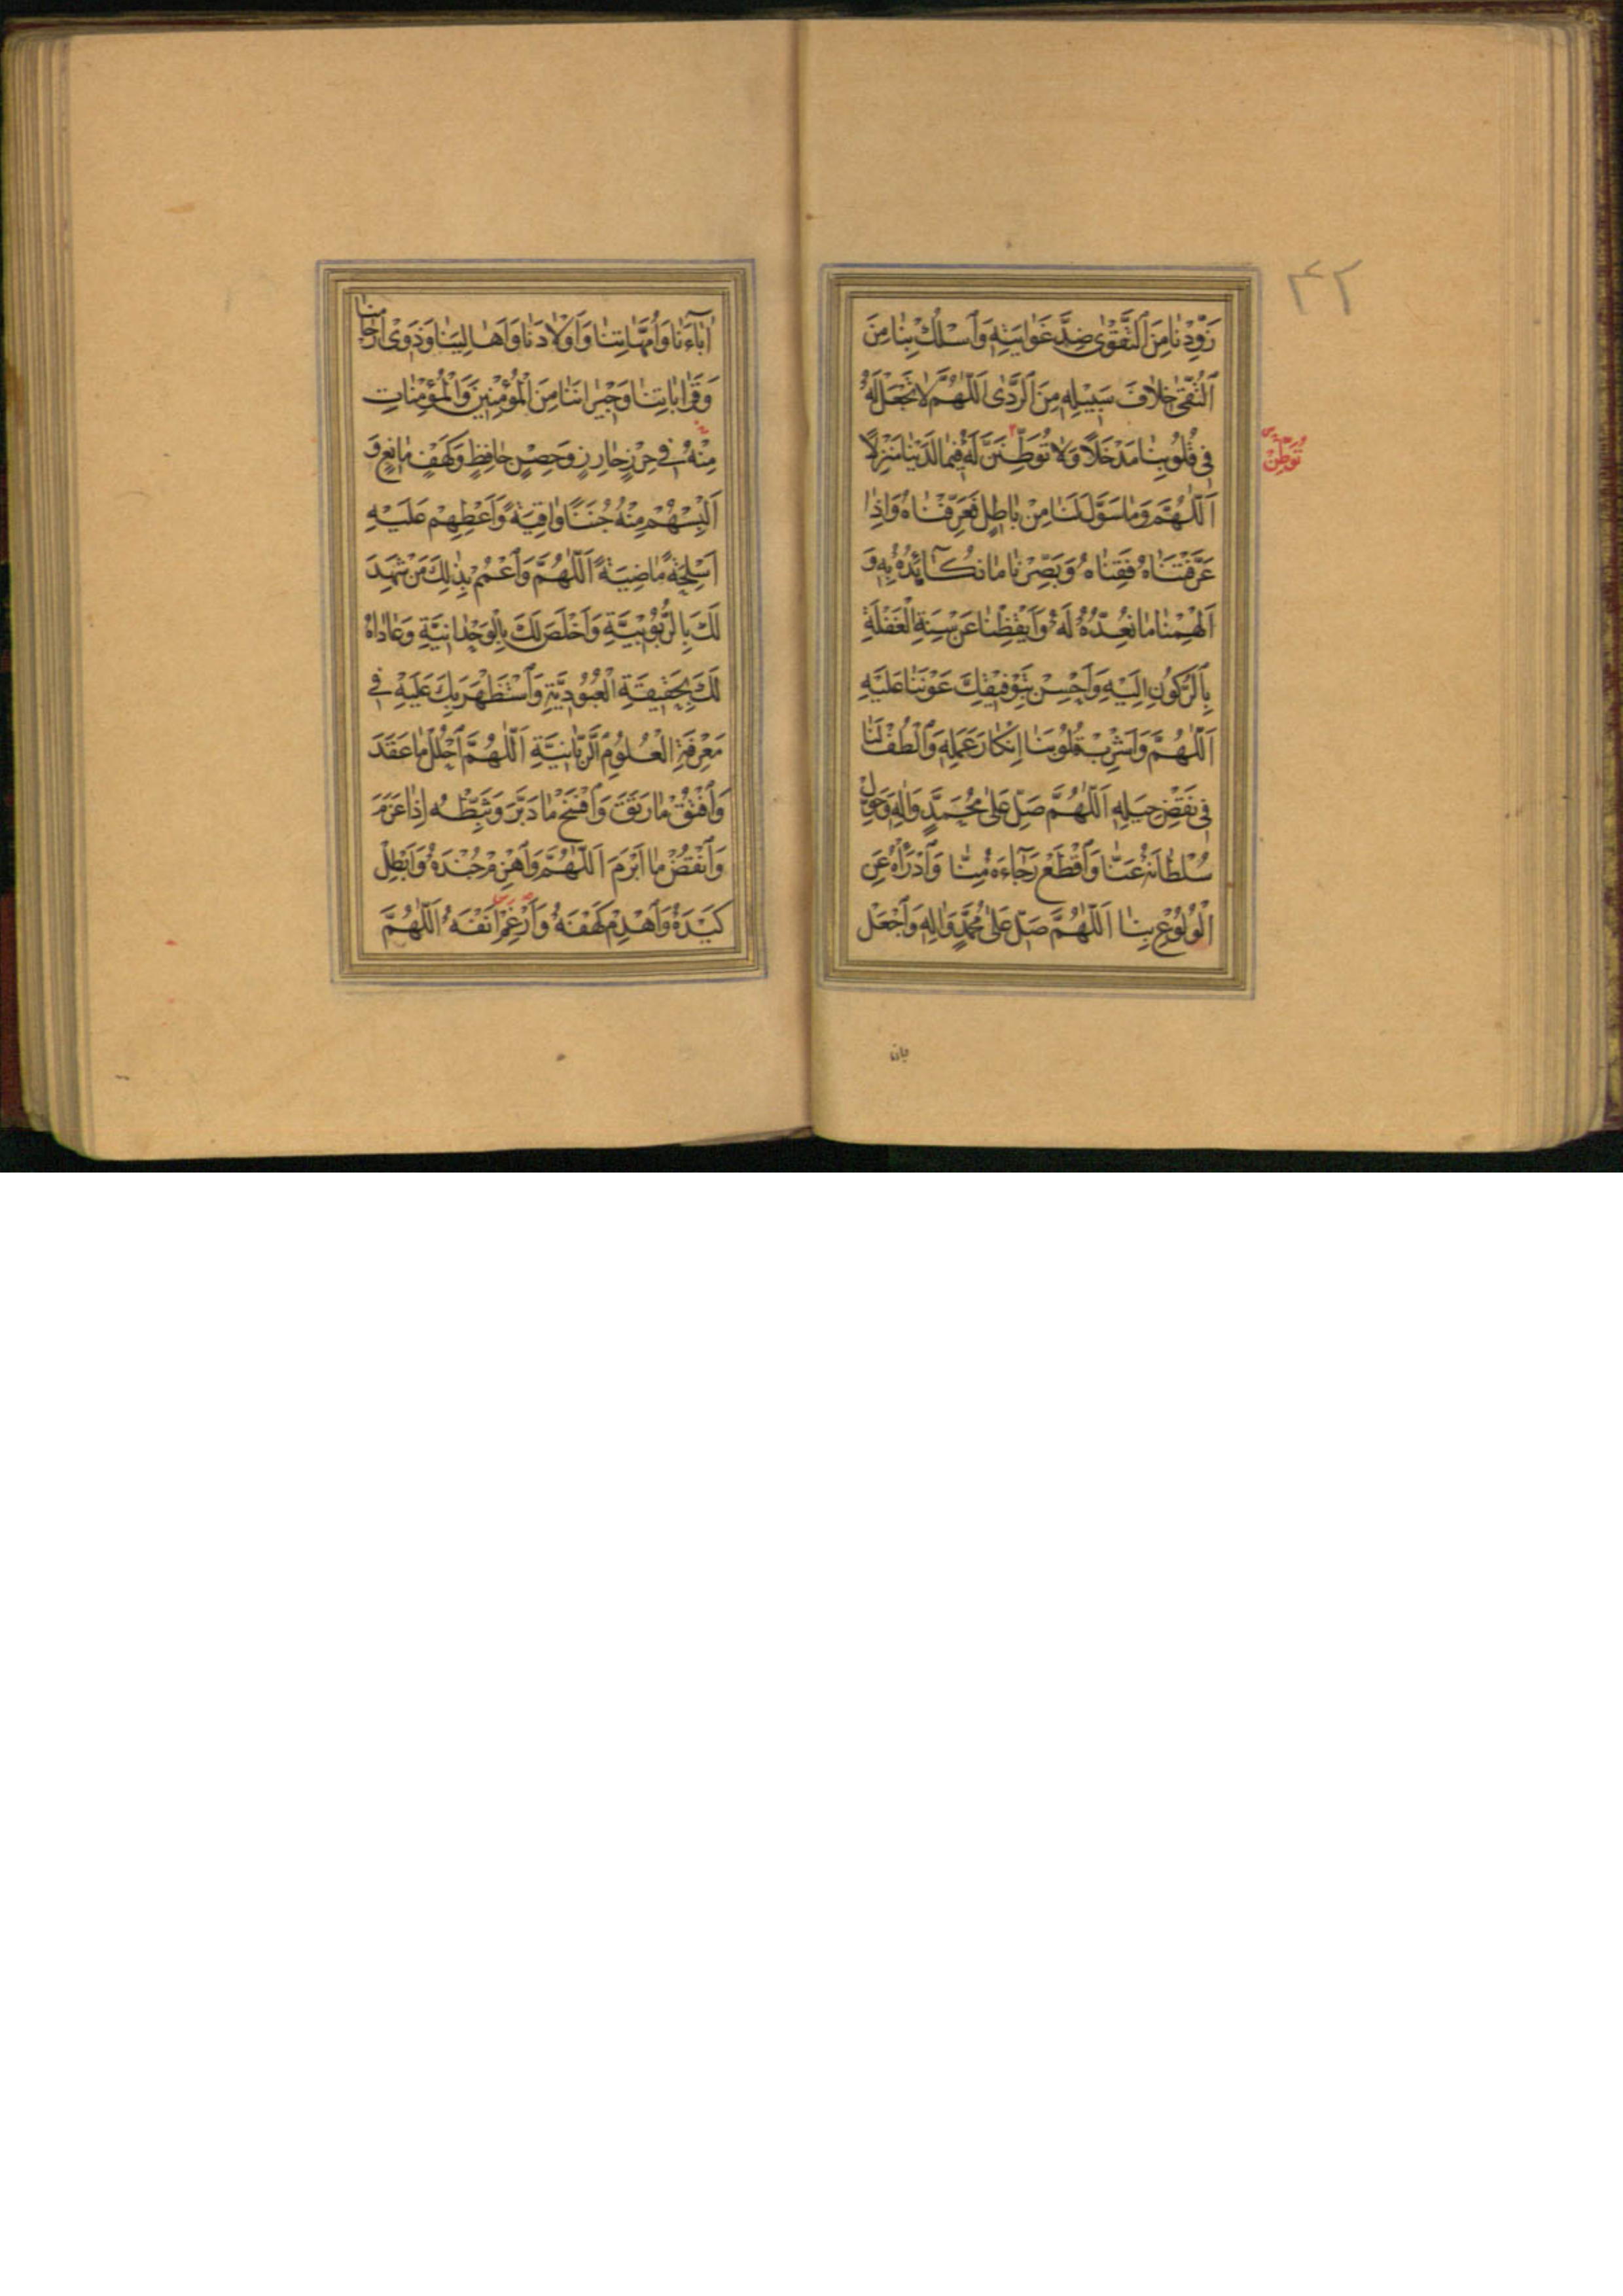 ٤٢
زَوِّدْنَا مِنَ ٱلتَّقْوٰى ضِدَّ غَوَايَتِهِ وَٱسْلُكْ بِنَا مِنَ
ٱلتُّقٰى خِلَافَ سَبِيْلِهِ مِنَ ٱلرَّدٰى اَللّٰهُمَّ لَا تَجْعَلْ لَهُ
فِى قُلُوبِنَا مَدْخَلًا وَلَا تُوَطِّنَنَّ لَهُ فِيمَا لَدَيْنَا مَنْزِلًا
تُوَطِّنْ
اَللّٰهُمَّ وَمَا سَوَّلَ لَنَا مِنْ بَاطِلٍ فَعَرِّفْنَاهُ وَاِذَا
عَرَّفْتَنَاهُ فَقِنَاهُ وَبَصِّرْنَا مَا نُكَائِدُهُ بِهِ وَ
اَلْهِمْنَا مَا نُعِدُّهُ لَهُ وَاَيْقِظْنَا عَنْ سِنَةِ الْغَفْلَةِ
بِٱلرُّكُونِ اِلَيْهِ وَاَحْسِنْ بِتَوْفِيْقِكَ عَوْنَنَا عَلَيْهِ
اَللّٰهُمَّ وَاَشْرِبْ قُلُوبَنَا اِنْكَارَ عَمَلِهِ وَٱلْطُفْ لَنَا
فِى نَقْضِ حِيَلِهِ اَللّٰهُمَّ صَلِّ عَلٰى مُحَمَّدٍ وَاٰلِهِ وَحَوِّلْ
سُلْطَانَهُ عَنَّا وَٱقْطَعْ رَجَاءَهُ مِنَّا وَٱدْرَأْهُ عَنِ
الْوُلُوْعِ بِنَا اَللّٰهُمَّ صَلِّ عَلٰى مُحَمَّدٍ وَاٰلِهِ وَٱجْعَلْ
اٰبَاءَنَا وَاُمَّهَاتِنَا وَاَوْلَادَنَا وَاَهَالِيَنَا وَذَوِى اَرْحَامِنَا
وَقَرَابَاتِنَا وَجِيْرَانَنَا مِنَ الْمُؤْمِنِيْنَ وَالْمُؤْمِنَاتِ
مِنْهُ فِى حِرْزٍ حَارِزٍ وَحِصْنٍ حَافِظٍ وَكَهْفٍ مَانِعٍ وَ
اَلْبِسْهُمْ مِنْهُ جُنَنًا وَاقِيَةً وَاَعْطِهِمْ عَلَيْهِ
اَسْلِحَةً مَاضِيَةً اَللّٰهُمَّ وَٱعْمُمْ بِذٰلِكَ مَنْ شَهِدَ
لَكَ بِالرُّبُوْبِيَّةِ وَاَخْلَصَ لَكَ بِالْوَحْدَانِيَّةِ وَعَادَاهُ
لَكَ بِحَقِيقَةِ الْعُبُوْدِيَّةِ وَٱسْتَظْهَرَ بِكَ عَلَيْهِ فِى
مَعْرِفَةِ الْعُلُوْمِ ٱلرَّبَّانِيَّةِ اَللّٰهُمَّ ٱحْلُلْ مَا عَقَدَ
وَٱفْتُقْ مَا رَتَقَ وَٱفْسَخْ مَا دَبَّرَ وَثَبِّطْهُ اِذَا عَزَمَ
وَٱنْقُضْ مَا اَبْرَمَ اَللّٰهُمَّ وَٱهْزِمْ جُنْدَهُ وَاَبْطِلْ
كَيْدَهُ وَٱهْدِمْ كَهْفَهُ وَاَرْغِمْ اَنْفَهُ اَللّٰهُمَّ